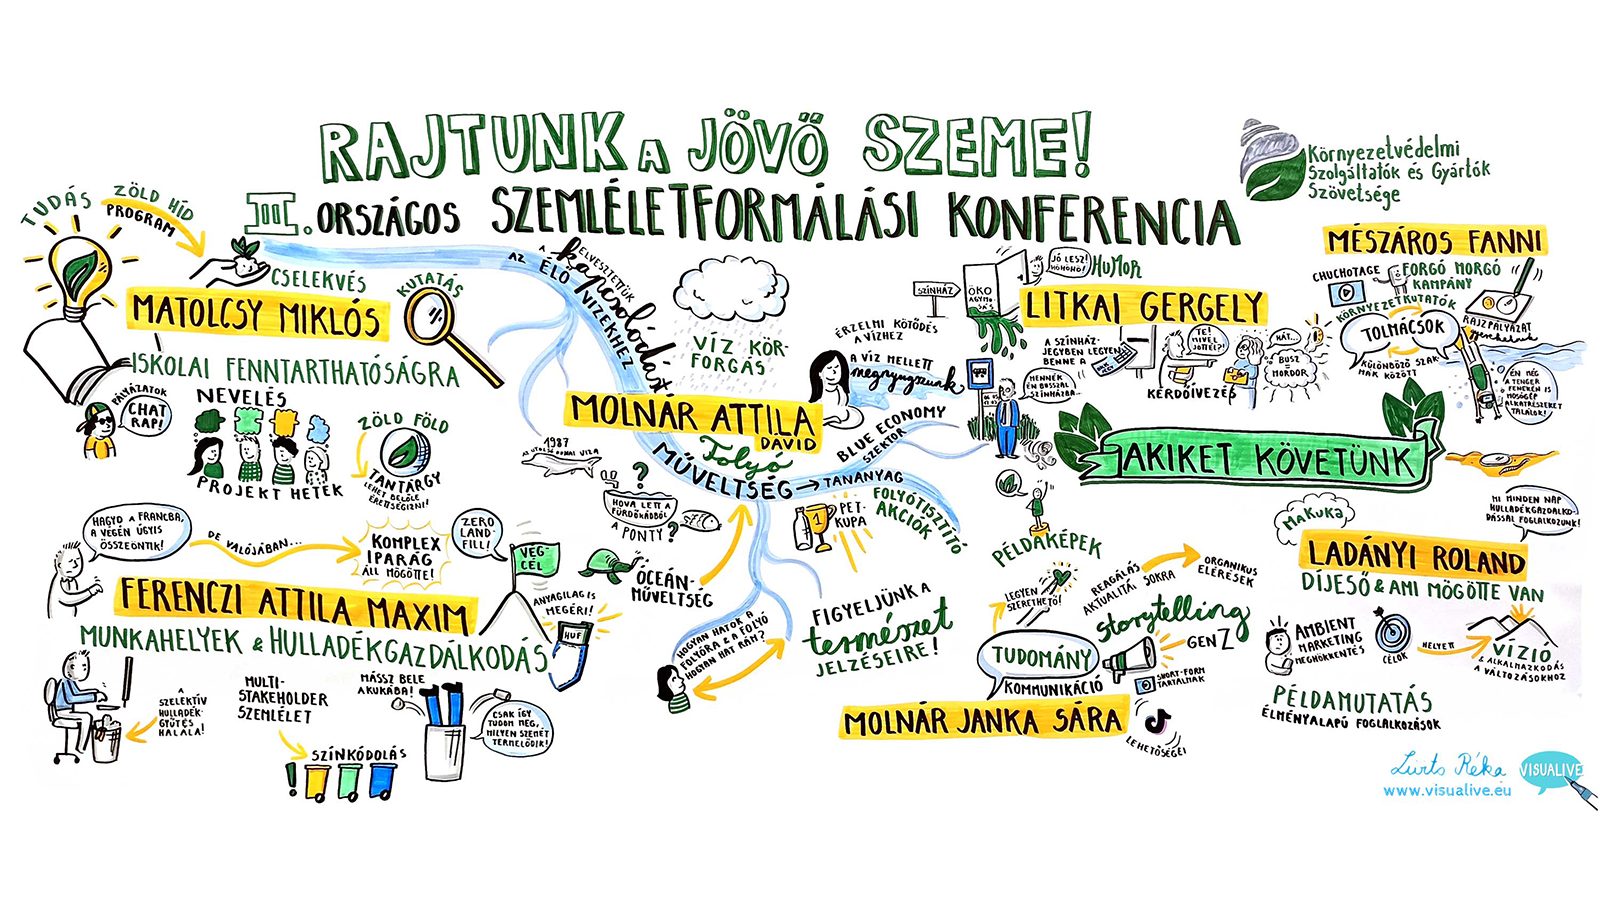 RAJTUNK A JÖVŐ SZEME!
III. ORSZÁGOS SZEMLÉLETFORMÁLÁSI KONFERENCIA
Környezetvédelmi
Szolgáltatók és Gyártók
Szövetsége
TUDÁS
ZÖLD HÍD
PROGRAM
CSELEKVÉS
KUTATÁS
MATOLCSY MIKLÓS
ISKOLAI FENNTARTHATÓSÁGRA
NEVELÉS
PÁLYÁZATOK
CHAT
RAP!
PROJEKT HETEK
ZÖLD FÖLD
TANTÁRGY
LEHET BELŐLE
ÉRETTSÉGIZNI!
HAGYD A FRANCBA,
A VÉGÉN ÚGYIS
ÖSSZEÖNTIK!
DE VALÓJÁBAN...
KOMPLEX
IPARÁG
ÁLL MÖGÖTTE!
ZERO
LAND-
FILL!
VÉG-
CÉL
ANYAGILAG IS
MEGÉRI!
HUF
FERENCZI ATTILA MAXIM
MUNKAHELYEK & HULLADÉKGAZDÁLKODÁS
A
SZELEKTÍV
HULLADÉK-
GYŰJTÉS
HALÁLA!
MULTI-
STAKEHOLDER
SZEMLÉLET
SZÍNKÓDOLÁS
MÁSSZ BELE
A KUKÁBA!
CSAK ÍGY
TUDOM MEG,
MILYEN SZEMÉT
TERMELŐDIK!
ELVESZTETTÜK
A kapcsolódást
AZ ÉLŐ VIZEKHEZ
VÍZ KÖR-
FORGÁS
ÉRZELMI KÖTŐDÉS
A VÍZHEZ
A VÍZ MELLETT
megnyugszunk
MOLNÁR ATTILA
DÁVID
Folyó
MŰVELTSÉG
TANANYAG
BLUE ECONOMY
SZEKTOR
1987
AZ UTOLSÓ DUNAI VIZA
?
HOVA LETT A
FÜRDŐKÁDBÓL
A PONTY?
?
PET-
KUPA
1
FOLYÓTISZTÍTÓ
AKCIÓK
ÓCEÁN-
MŰVELTSÉG
HOGYAN HATOK A
FOLYÓRA & A FOLYÓ
HOGYAN HAT RÁM?
FIGYELJÜNK A
természet
JELZÉSEIRE!
SZÍNHÁZ
ÖKO
JÓ LESZ!
HOHOHÓ!
HUMOR
LITKAI GERGELY
A SZÍNHÁZ-
JEGYBEN LEGYEN
BENNE A
TE!
MIVEL
JÖTTÉL?!
KÉRDŐÍVEZÉS
HÁT...
BUSZ
=
MORDOR
MENNÉK
ÉN BUSSZAL
SZÍNHÁZBA...
MÉSZÁROS FANNI
CHUCHOTAGE
FORGÓ MORGÓ
KAMPÁNY
KÖRNYEZETKUTATÓK
TOLMÁCSOK
KÜLÖNBÖZŐ SZAK-
MÁK KÖZÖTT
RAJZPÁLYÁZAT
gyerekeknek
ÉN MÉG
A TENGER
FENEKÉN IS
MOSÓGÉP
ALKATRÉSZEKET
TALÁLOK!
AKIKET KÖVETÜNK
PÉLDAKÉPEK
LEGYEN
SZERETHETŐ!
REAGÁLÁS
AKTUALITÁSOKRA
ORGANIKUS
ELÉRÉSEK
storytelling
GEN Z
TUDOMÁNY
KOMMUNIKÁCIÓ
SHORT-FORM
TARTALMAK
LEHETŐSÉGEI
MOLNÁR JANKA SÁRA
MAKUKA
MI MINDEN NAP
HULLADÉKGAZDÁLKO-
DÁSSAL FOGLALKOZUNK!
LADÁNYI ROLAND
DÍJESŐ & AMI MÖGÖTTE VAN
AMBIENT
MARKETING
MEGHÖKKENTÉS
CÉLOK
HELYETT
VÍZIÓ
& ALKALMAZKODÁS
A VÁLTOZÁSOKHOZ
PÉLDAMUTATÁS
ÉLMÉNYALAPÚ FOGLALKOZÁSOK
Livts Réka
VISUALIVE
www.visualive.eu